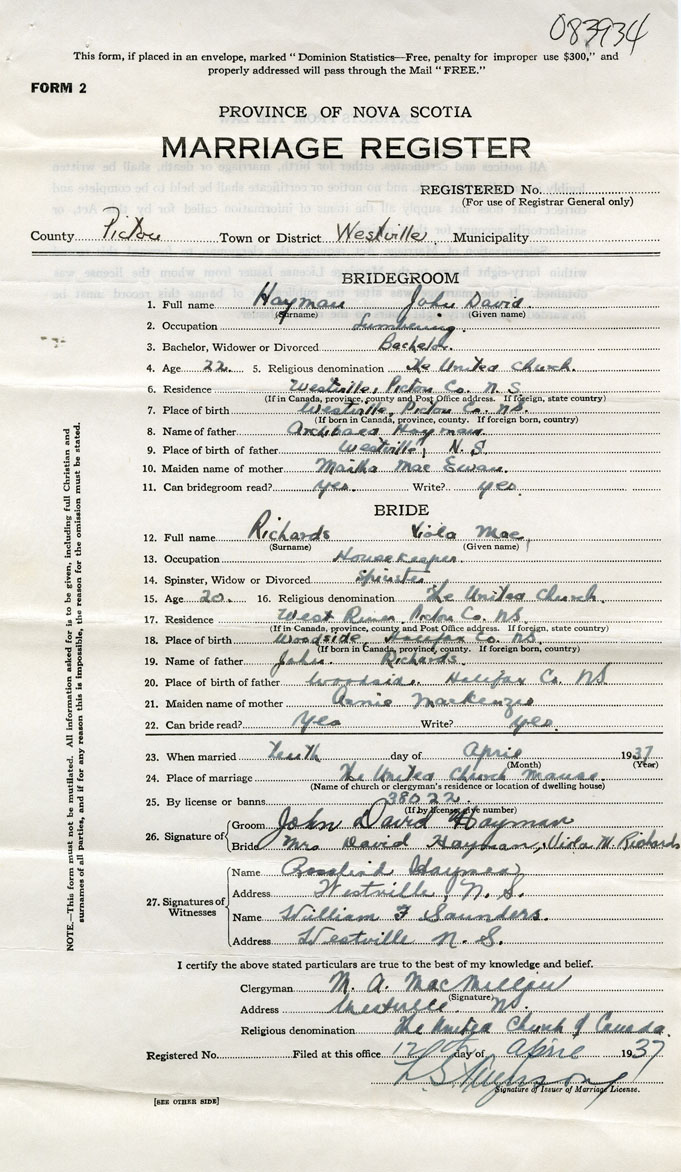 083934
This form, if placed in an envelope, marked "Dominion Statistics—Free, penalty for improper use $300," and
properly addressed will pass through the Mail "FREE."
FORM 2
PROVINCE OF NOVA SCOTIA
MARRIAGE REGISTER
REGISTERED No.
(For use of Registrar General only)
County Pictou Town or District Westville, Municipality
BRIDEGROOM
1. Full name Hayman John David
(Surname) (Given name)
2. Occupation Lumbering.
3. Bachelor, Widower or Divorced Bachelor.
4. Age 22. 5. Religious denomination The United Church.
6. Residence Westville, Pictou Co. N.S.
(If in Canada, province, county and Post Office address. If foreign, state country)
7. Place of birth Westville, Pictou Co. N.S.
(If born in Canada, province, county. If foreign born, country)
8. Name of father Archibald Hayman
9. Place of birth of father Westville, N.S.
10. Maiden name of mother Martha Mac Ewan.
11. Can bridegroom read? yes. Write? yes.
BRIDE
12. Full name Richards Viola Mae
(Surname) (Given name)
13. Occupation Housekeeper.
14. Spinster, Widow or Divorced Spinster
15. Age 20. 16. Religious denomination The United Church.
17. Residence West River Pictou Co. N.S.
(If in Canada, province, county and Post Office address. If foreign, state country)
18. Place of birth Woodside, Halifax Co. N.S.
(If born in Canada, province, county. If foreign born, country)
19. Name of father John Richards.
20. Place of birth of father Woodside. Halifax Co. N.S.
21. Maiden name of mother Annie Mackenzie
22. Can bride read? Yes Write? yes.
23. When married tenth day of April 1937
(Month) (Year)
24. Place of marriage The United Church Manse.
(Name of church or clergyman's residence or location of dwelling house)
25. By license or banns 38022.
(If by license, give number)
26. Signature of Groom John David Hayman
Bride Mrs David Hayman, Viola M. Richards
27. Signatures of Witnesses
Name
Address Westville, N.S.
Name William F Saunders.
Address Westville N.S.
I certify the above stated particulars are true to the best of my knowledge and belief.
Clergyman M. A. MacMillan
(Signature)
Address Westville. N.S.
Religious denomination The United Church of Canada.
Registered No. Filed at this office 12th day of April 1937
Signature of Issuer of Marriage License.
[SEE OTHER SIDE]
NOTE.—This form must not be mutilated. All information asked for is to be given, including full Christian and
surnames of all parties, and if for any reason this is impossible, the reason for the omission must be stated.